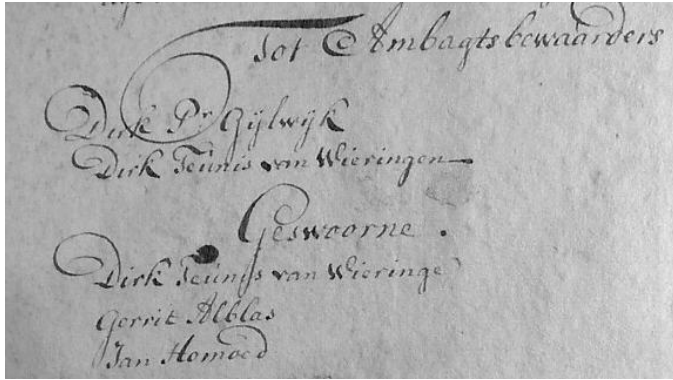 Tot Ambagtsbewaarders
Dirk Pr Gijlwijk
Dirk Teunis van Wieringen
Geswoorne.
Dirk Teunis van Wieringe
Gerrit Alblas
Jan Homoed